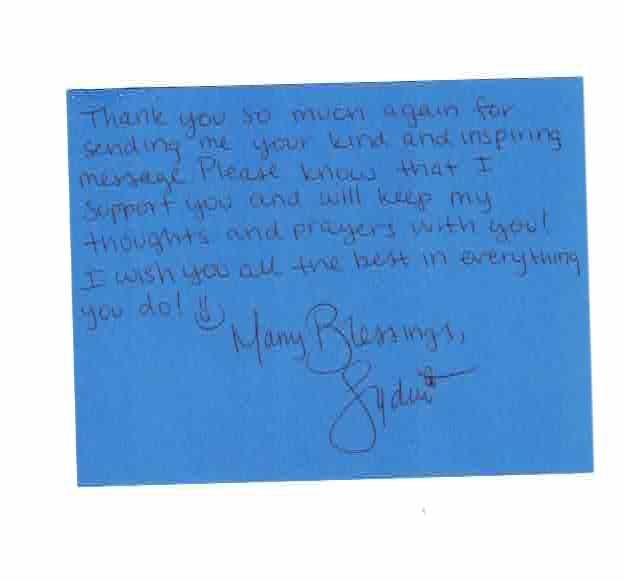 Thank you so much again for
sending me your kind and inspiring
message. Please know that I
support you and will keep my
thoughts and prayers with you!
I wish you all the best in everything
you do!
Many Blessings,